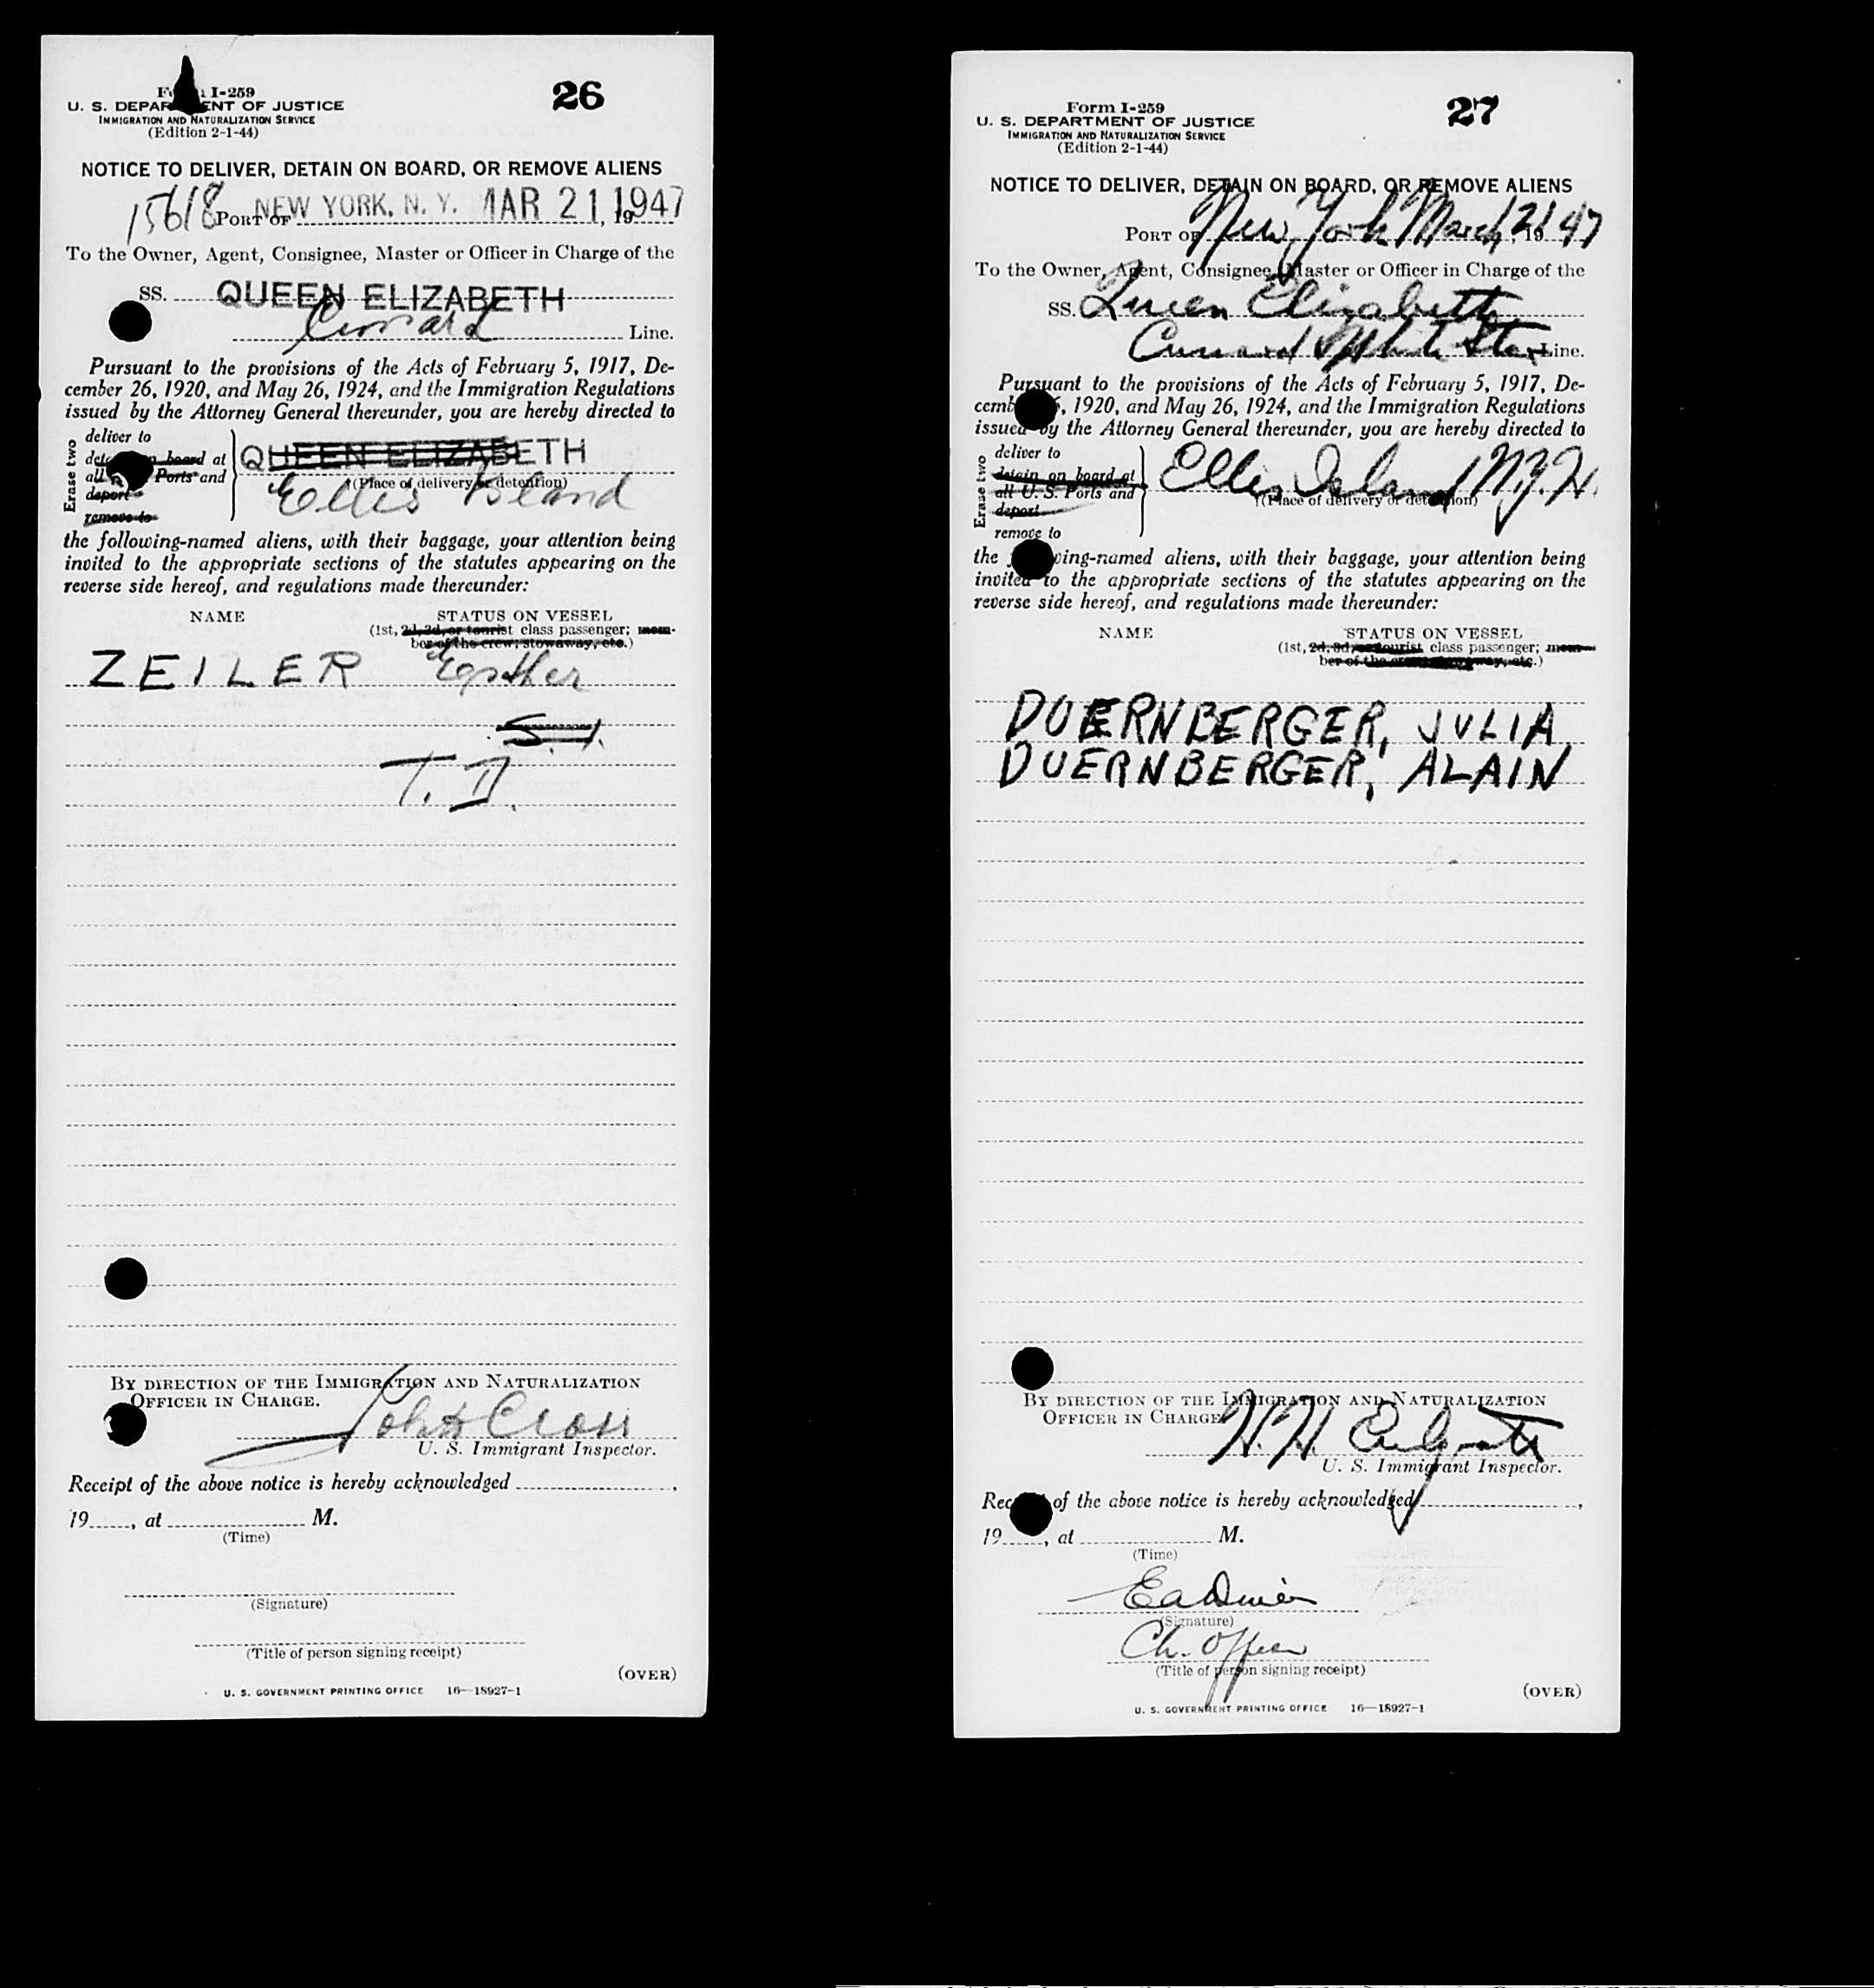 Form I-259
26
U. S. DEPARTMENT OF JUSTICE
IMMIGRATION AND NATURALIZATION SERVICE
(Edition 2-1-44)
NOTICE TO DELIVER, DETAIN ON BOARD, OR REMOVE ALIENS
15618 PORT OF NEW YORK, N. Y. MAR 21 1947
To the Owner, Agent, Consignee, Master or Officer in Charge of the
SS. QUEEN ELIZABETH
Cunard Line.
Pursuant to the provisions of the Acts of February 5, 1917, De-
cember 26, 1920, and May 26, 1924, and the Immigration Regulations
issued by the Attorney General thereunder, you are hereby directed to
Erase two
deliver to
board at QUEEN ELIZABETH
all Ports and
(Place of delivery or detention)
deport Ellis Island
remove to
the following-named aliens, with their baggage, your attention being
invited to the appropriate sections of the statutes appearing on the
reverse side hereof, and regulations made thereunder:
NAME STATUS ON VESSEL
(1st, 2d, 3d, or tourist class passenger; mem-
ber of the crew, stowaway, etc.)
ZEILER Esther
S. I.
T. D.
BY DIRECTION OF THE IMMIGRATION AND NATURALIZATION
OFFICER IN CHARGE.
John Cross
U. S. Immigrant Inspector.
Receipt of the above notice is hereby acknowledged
19 , at M.
(Time)
(Signature)
(Title of person signing receipt)
(OVER)
U. S. GOVERNMENT PRINTING OFFICE 16—18927-1
Form I-259
27
U. S. DEPARTMENT OF JUSTICE
IMMIGRATION AND NATURALIZATION SERVICE
(Edition 2-1-44)
NOTICE TO DELIVER, DETAIN ON BOARD, OR REMOVE ALIENS
PORT OF New York March 21, 1947
To the Owner, Agent, Consignee, Master or Officer in Charge of the
SS. Queen Elizabeth
Cunard White Star Line.
Pursuant to the provisions of the Acts of February 5, 1917, De-
1920, and May 26, 1924, and the Immigration Regulations
issued by the Attorney General thereunder, you are hereby directed to
Erase two
deliver to
detain on board at Ellis Island N.Y.H.
all U. S. Ports and
(Place of delivery or detention)
deport
remove to
the following-named aliens, with their baggage, your attention being
invited to the appropriate sections of the statutes appearing on the
reverse side hereof, and regulations made thereunder:
NAME STATUS ON VESSEL
(1st, 2d, 3d, or tourist class passenger; mem-
ber of the crew, stowaway, etc.)
DUERNBERGER, JULIA
DUERNBERGER, ALAIN
BY DIRECTION OF THE IMMIGRATION AND NATURALIZATION
OFFICER IN CHARGE.
H. H.
U. S. Immigrant Inspector.
Receipt of the above notice is hereby acknowledged
19 , at M.
(Time)
(Signature)
Ch. Officer
(Title of person signing receipt)
(OVER)
U. S. GOVERNMENT PRINTING OFFICE 16—18927-1